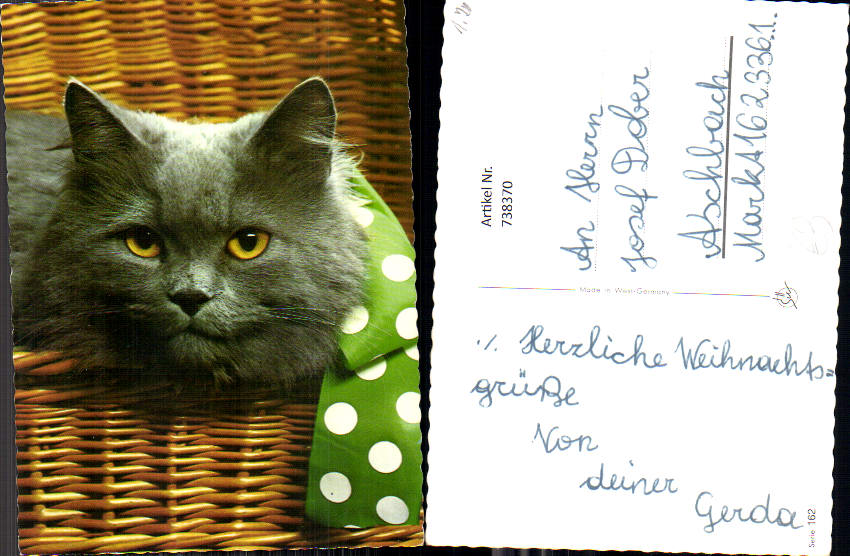 Artikel Nr.
738370
An Herrn
Josef Dober
Aschbach
Markt 162 3361.
Made in West-Germany
./. Herzliche Weihnachts=
grüße
Von
deiner
Gerda
Serie 162